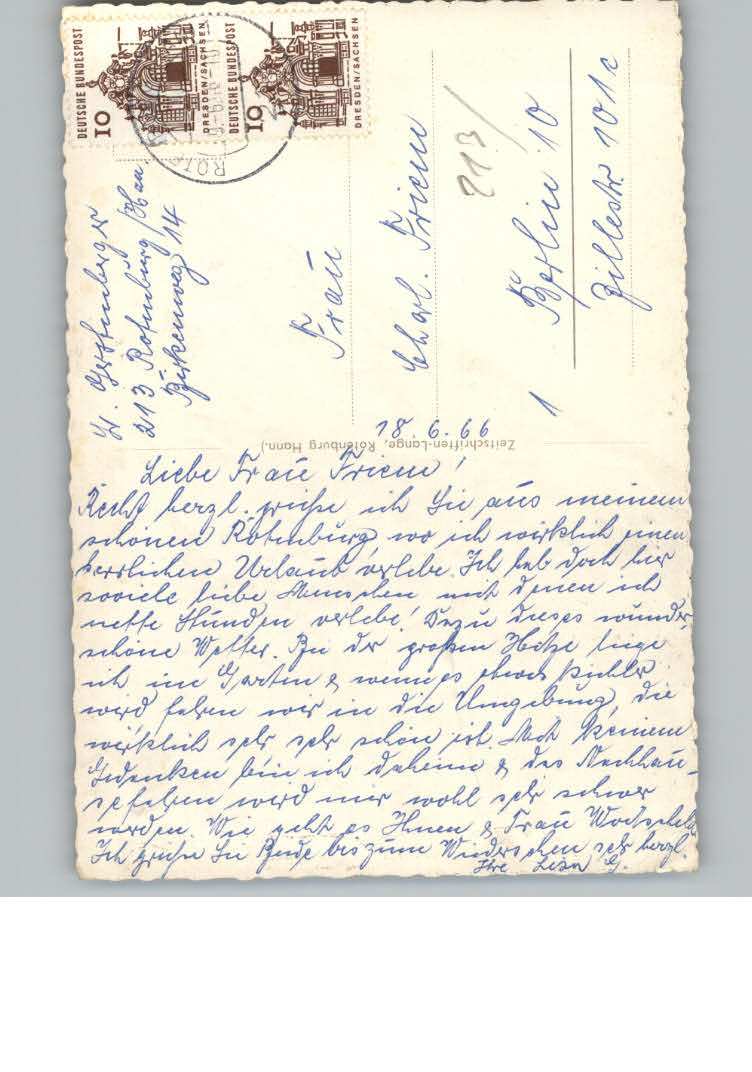 DEUTSCHE BUNDESPOST
10
DRESDEN/SACHSEN
DEUTSCHE BUNDESPOST
10
DRESDEN/SACHSEN
L. Gerstenberger
213 Rotenburg/Han.
Birkenweg 14
Frau
Charl. Friem
213/
1 Berlin 10
Zillestr. 101c
Zeitschriften-Lange, Rotenburg Hann.)
18.6.66
Liebe Frau Friem!
Recht herzl. grüße ich Sie aus meinem
schönen Rotenburg, wo ich wirklich einen
herrlichen Urlaub verlebe. Ich hab doch hier
soviele liebe Menschen mit denen ich
nette Stunden verlebe! Dazu dieses wunder-
schöne Wetter. Bei der großen Hitze liege
ich im Garten & wenn es etwas kühler
wird fahren wir in die Umgebung, die
wirklich sehr sehr schön ist. Mit keinem
Gedanken bin ich daheim & das Nachhau-
sefahren wird mir wohl sehr schwer
werden. Wie geht es Ihnen & Frau
Ich grüße Sie Beide bis zum Wiedersehen sehr herzl.
Ihre Lisa G.